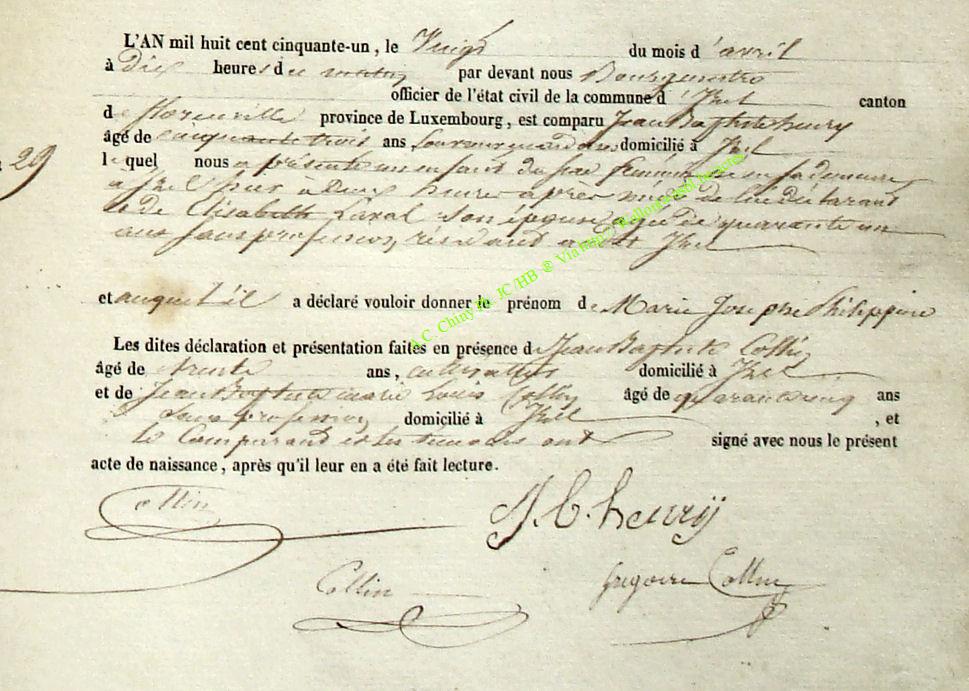 L'AN mil huit cent cinquante-un, le Vingt du mois d'avril
à dix heures du matin par devant nous Bourgmestre
officier de l'état civil de la commune d'Izel canton
de florenville province de Luxembourg, est comparu Jean Baptiste henry
âgé de cinquante trois ans domicilié à Izel
29
lequel nous a présenté un enfant du sexe féminin né en sa demeure
à Izel hier à deux heures après midi de lui déclarant
et de Elisabeth Laval son épouse agée de quarante un
ans sans profession, résidant à dit Izel
et auquel il a déclaré vouloir donner le prénom de Marie Josephe Philippine
Les dites déclaration et présentation faites en présence de Jean Baptiste Collin
âgé de trente ans, cultivateur domicilié à Izel
et de Jean Baptiste marie Louis Collin âgé de quarante cinq ans
sans profession domicilié à Izel , et
le Comparant et les temoins ont signé avec nous le présent
acte de naissance, après qu'il leur en a été fait lecture.
Collin J. b. henry
Collin Gregoire Collin
A.C. Chiny JC/HB ® Via http://